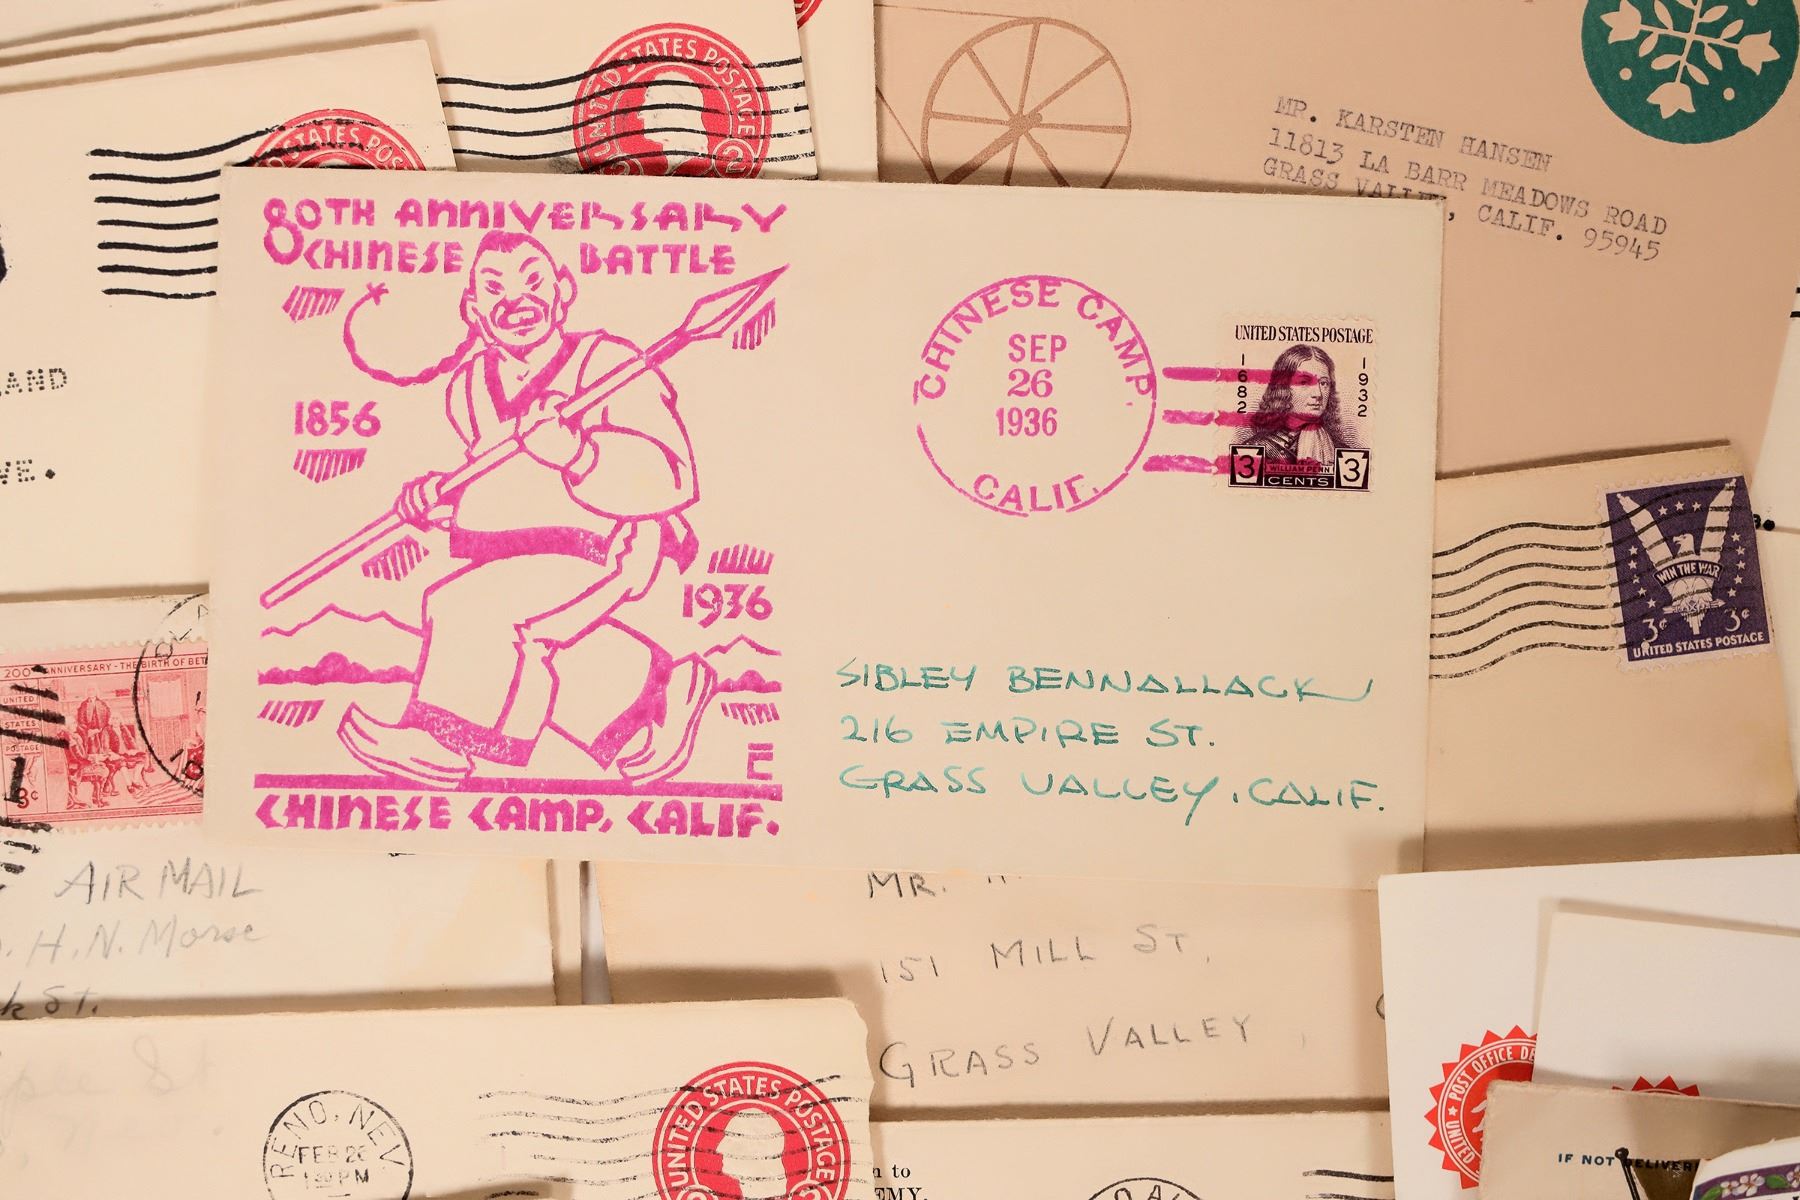 UNITED STATES POSTAGE
2
STATES POS
MR. KARSTEN HANSEN
11813 LA BARR MEADOWS ROAD
GRASS VALLEY, CALIF. 95945
AND
VE.
80TH ANNIVERSARY
CHINESE BATTLE
1856
1936
CHINESE CAMP, CALIF.
CHINESE CAMP,
SEP
26
1936
CALIF.
UNITED STATES POSTAGE
1682
1932
3 WILLIAM PENN 3
CENTS
SIBLEY BENNALLACK
216 EMPIRE ST.
GRASS VALLEY, CALIF.
WIN THE WAR
3¢ 3¢
UNITED STATES POSTAGE
200 ANNIVERSARY - THE BIRTH OF BET
UNITED
STATES
POSTAGE
3¢
AIR MAIL
H. N. Morse
k St.
MR. H
151 MILL ST,
GRASS VALLEY,
RENO, NEV
FEB 26
PM
UNITED STATES POSTAGE
n to
EMY,
POST OFFICE DE
UNITED
IF NOT DELIVER